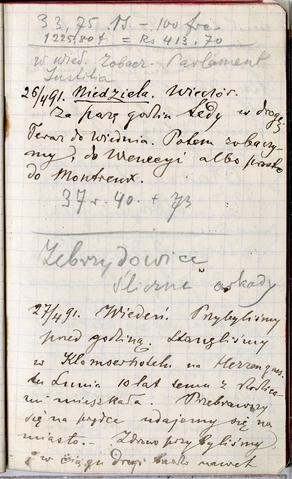 33,75 . 15 = 100 frc
1225,80 f = Rs 413.70
w Wied. zobacz. Parlament
Justitia
26/491. Niedziela. Wieczór.
Za parę godzin będę w drodze
Teraz do Wiednia. Potem zobaczy-
my, do Wenecyi albo prosto
do Montreux.
37 r. 40. + 73
Zebrzydowice
śliczne arkady
27/491. Wiedeń. Przybyliśmy
przed godziną. Stanęliśmy
w Klomserhotelu na Herrengas.
10 lat temu z
mieszkała. Przebrawszy
się na prędce udajemy się na
miasto. Zdrowo przybyliśmy,
w ciągu drogi nawet